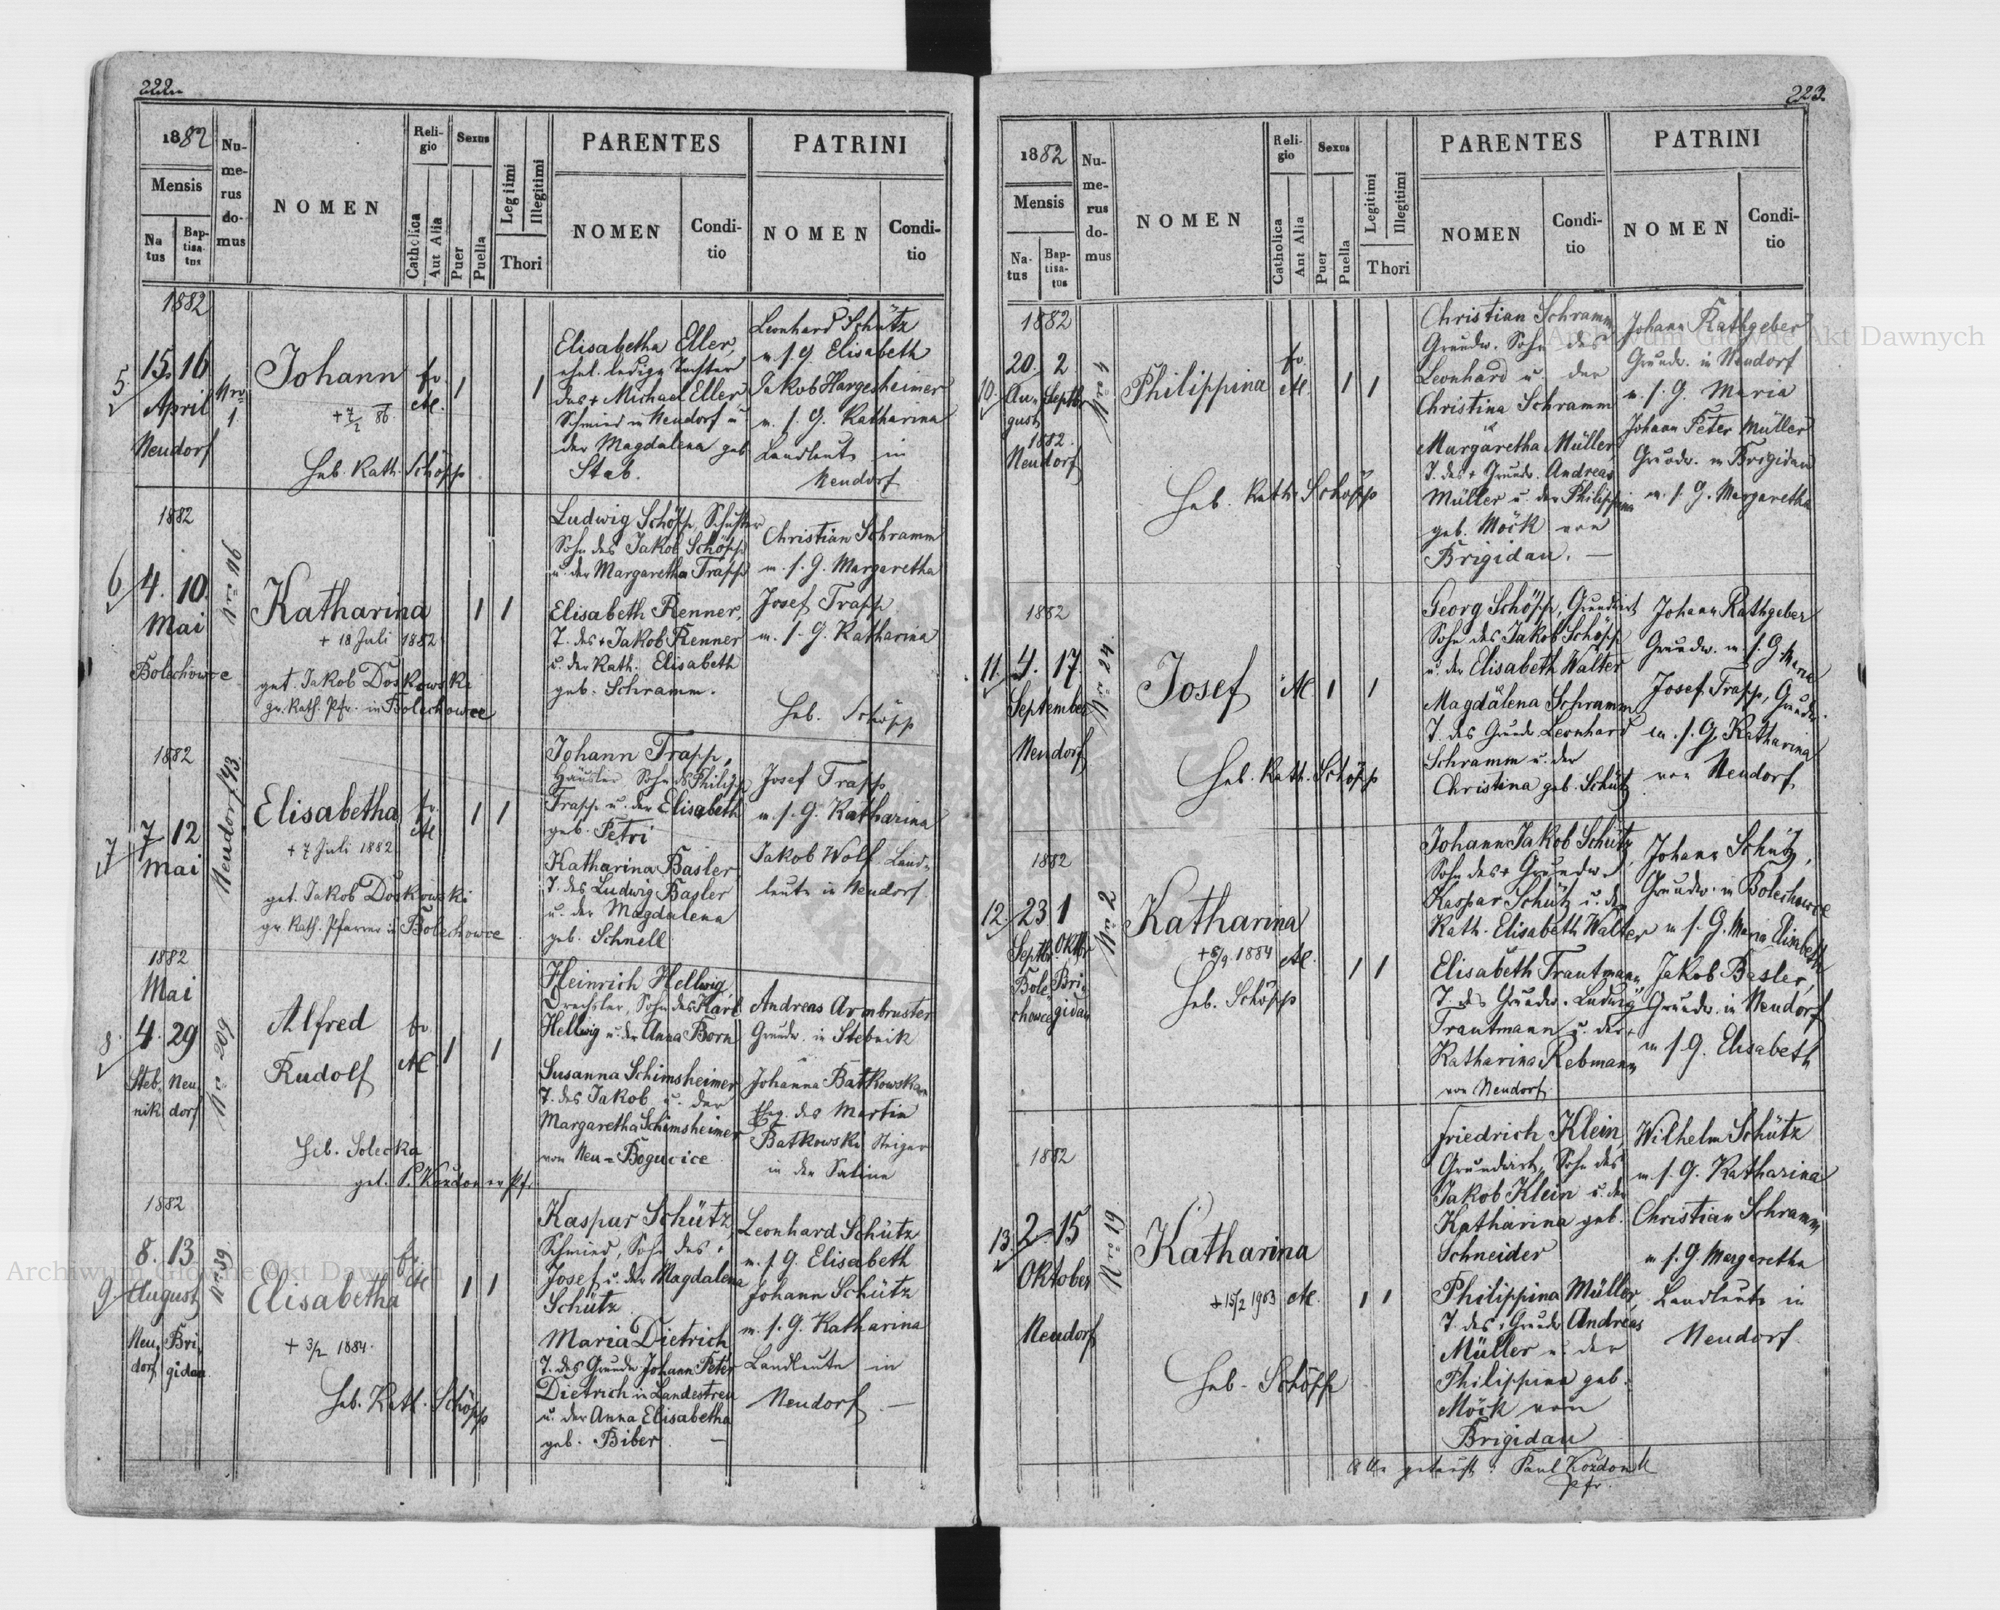 222.
1882
Mensis
Na
tus
Bap-
tisa-
tus
Nu-
me-
rus
do-
mus
NOMEN
Reli-
gio
Catholica
Aut Alia
Sexus
Puer
Puella
Legiimi
Illegitimi
Thori
PARENTES
NOMEN
Condi-
tio
PATRINI
NOMEN
Condi-
tio
5.
1882
15. 16
April
Neudorf
Nro
1
Johann
+ 7/2 86.
Heb. Kath. Schöpp
ev.
AC.
1
1
Elisabetha Eller,
ehel. ledige Tochter
des + Michael Eller
Schmied in Neudorf u
der Magdalena geb
Stab.
Leonhard Schütz
m. s. G. Elisabeth
Jakob Hargesheimer
m. s. G. Katharina
Landleute in
Neudorf
6
1882
4. 10.
Mai
Bolechowce
Nro 116
Katharina
+ 18 Juli 1882
get. Jakob Doskowski
gr. Kath. Pfr. in Bolechowce
1 1
Ludwig Schöpp, Schuster
Sohn des Jakob Schöpp
u. der Margaretha Trapp
Elisabeth Renner,
T. des + Jakob Renner
u. der Kath. Elisabeth
geb. Schramm.
Christian Schramm
m. s. G. Margaretha
Josef Trapp
m. s. G. Katharina
Heb. Schöpp
7
1882
7 12
Mai
Neudorf 43.
Elisabetha
+ 7 Juli 1882
get. Jakob Doskowski
gr. Kath. Pfarrer in Bolechowce
ev.
AC
1 1
Johann Trapp,
Häusler Sohn des Philipp
Trapp u. der Elisabeth
geb. Petri
Katharina Basler
T. des Ludwig Basler
u. der Magdalena
geb. Schnell
Josef Trapp
m. s. G. Katharina
Jakob Wolf Land-
leute in Neudorf.
8.
1882
Mai
4. 29
Steb- Neu-
nik dorf
Nro 209
Alfred
Rudolf
Heb. Solecka
get. P. Kozdon ev Pf.
ev.
AC.
1 1
Heinrich Hellwig
Drechsler, Sohn des Karl
Hellwig u. der Anna Born
Susanna Schimsheimer
T. des Jakob u. der
Margaretha Schimsheimer
von Neu-Bogucice
Andreas Armbruster
Grundw. in Stebnik
Johanna Batkowska
Eheg. des Martin
Batkowski Steiger
in der Saline
9
1882
8. 13
August
Neu- Bri-
dorf gidau
Nro 39.
Elisabetha
+ 3/2 1884.
Heb. Kath. Schöpp
ev.
AC
1 1
Kaspar Schütz
Schmied, Sohn des +
Josef u. der Magdalena
Schütz
Maria Dietrich
T. des Grundw Johann Peter
Dietrich in Landestreu
u. der Anna Elisabetha
geb. Biber.
Leonhard Schütz
m. s. G. Elisabeth
Johann Schütz
m. s. G. Katharina
Landleute in
Neudorf.
223.
1882
Mensis
Na-
tus
Bap-
tisa-
tus
Nu-
me-
rus
do-
mus
NOMEN
Reli-
gio
Catholica
Aut Alia
Sexus
Puer
Puella
Legitimi
Illegitimi
Thori
PARENTES
NOMEN
Condi-
tio
PATRINI
NOMEN
Condi-
tio
10.
1882
20. 2
Au- Septbr
gust
1882.
Neudorf
Nro 4
Philippina
Heb. Kath. Schöpp
ev.
AC.
1 1
Christian Schramm,
Grundw. Sohn des
Leonhard u. der
Christina Schramm
Margaretha Müller,
T. des + Grundw. Andreas
Müller u. der Philippina
geb. Möck von
Brigidau.
Johann Rathgeber
Grundw. in Neudorf
m. s. G. Maria
Johann Peter Müller
Grundw. in Brigidau
m. s. G. Margaretha
11.
1882
4. 17.
September
Neudorf
Nro 24.
Josef
Heb. Kath. Schöpp
AC
1 1
Georg Schöpp, Grundwirt
Sohn des Jakob Schöpp
u. der Elisabeth Walter
Magdalena Schramm
T. des Grundw Leonhard
Schramm u. der
Christina geb. Schütz
Johann Rathgeber
Grundw. m. s. G. Maria
Josef Trapp, Grundw.
m. s. G. Katharina
von Neudorf
12.
1882
23 1
Septbr. Oktbr
Bole- Bri-
chowce gidau
Nro 2
Katharina
+ 8/9. 1884
Heb. Schöpp
AC.
1 1
Johann Jakob Schütz,
Sohn des + Grundw.
Kaspar Schütz u. der
Kath. Elisabeth Walter
Elisabeth Trautmann,
T. des Grundw. Ludwig
Trautmann u. der +
Katharina Rebmann
von Neudorf
Johann Schütz,
Grundw. in Bolechowce
m s. G. Maria Elisabeth
Jakob Basler,
Grundw. in Neudorf
m s. G. Elisabeth
13
1882
2. 15
Oktober
Neudorf
Nro 19
Katharina
+ 15/2 1903
Heb. Schöpp
AC.
1 1
Friedrich Klein,
Grundwirt, Sohn des
Jakob Klein u. der
Katharina geb.
Schneider
Philippina Müller,
T. des + Grundw Andreas
Müller u. der
Philippina geb.
Möck von
Brigidau
Wilhelm Schütz
m s. G. Katharina
Christian Schramm
m s. G. Margaretha
Landleute in
Neudorf.
Alle getauft: Paul Kozdon
Pfr.
Archiwum Główne Akt Dawnych
Archiwum Główne Akt Dawnych